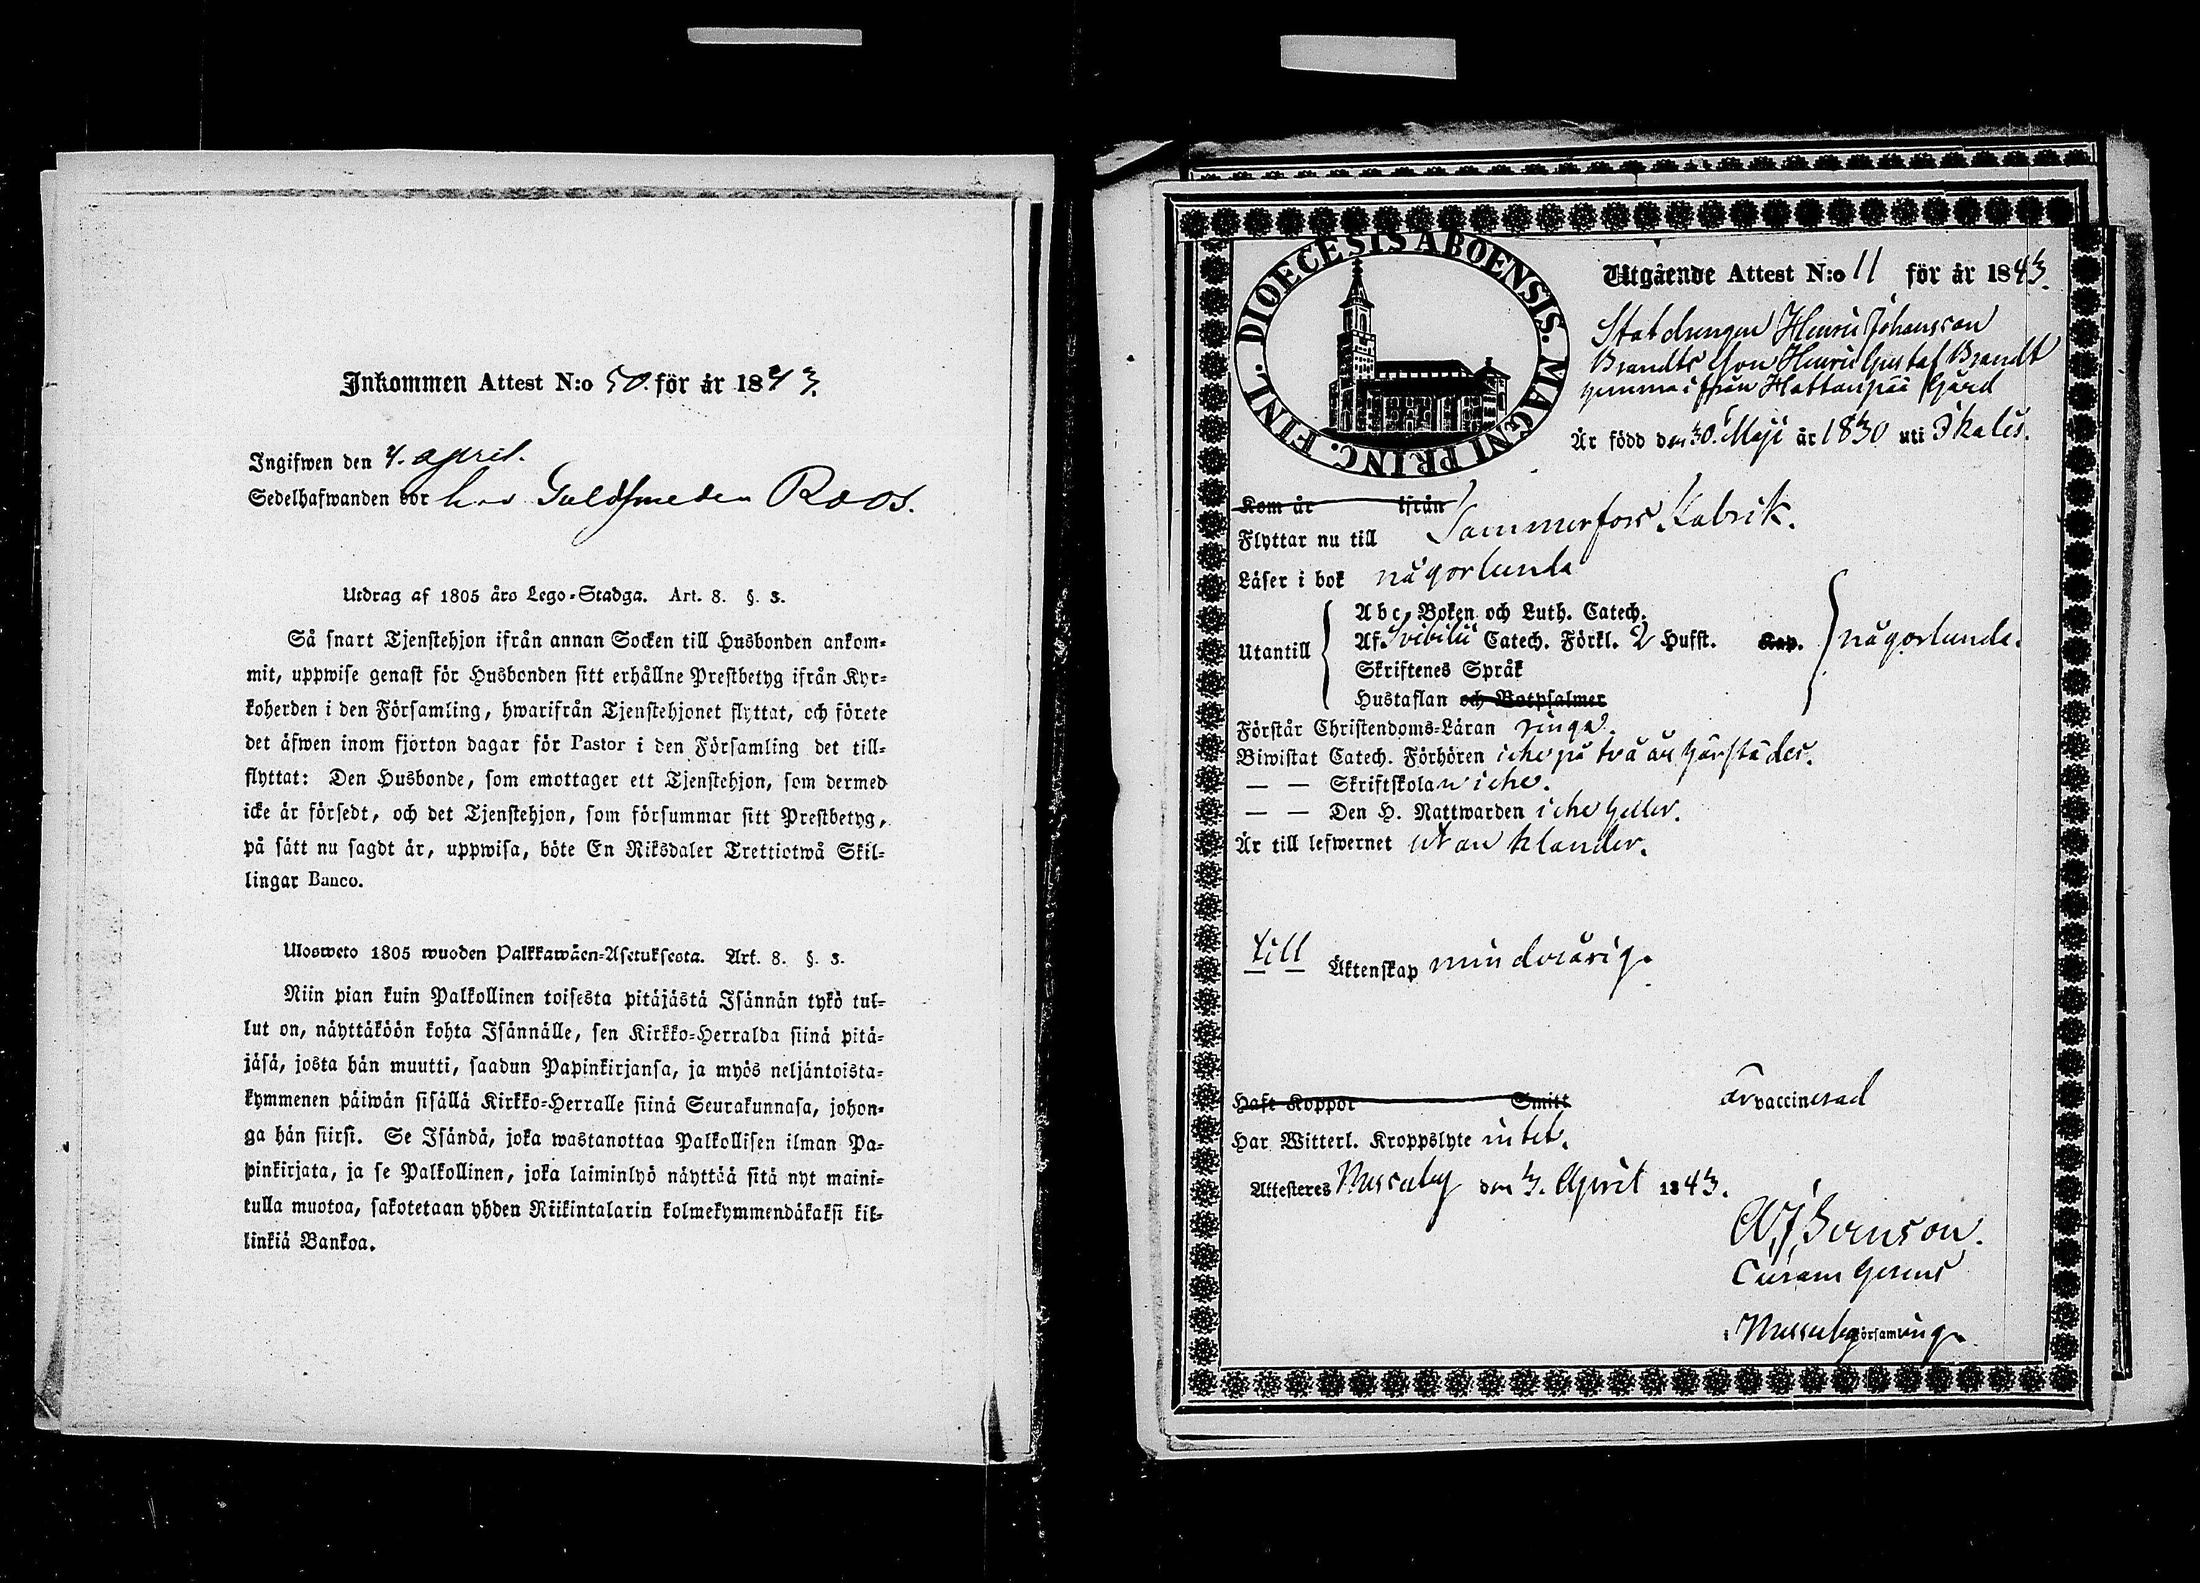 Inkommen Attest N:o 50. för år 1843.
Ingifwen den 4. april.
Sedelhafwanden bor hos Guldsmeden Roos.
Utdrag af 1805 års Lego-Stadga. Art. 8. §. 3.
Så snart Tjenstehjon ifrån annan Socken till Husbonden ankom-
mit, uppwise genast för Husbonden sitt erhållne Prestbetyg ifrån Kyr-
koherden i den Församling, hwarifrån Tjenstehjonet flyttat, och förete
det äfwen inom fjorton dagar för Pastor i den Församling det till-
flyttat: Den Husbonde, som emottager ett Tjenstehjon, som dermed
icke är försedt, och det Tjenstehjon, som försummar sitt Prestbetyg,
på sätt nu sagdt är, uppwisa, böte En Riksdaler Trettiotwå Skil-
lingar Banco.
Ulosweto 1805 wuoden Palkkawäen-Asetuksesta. Art. 8. §. 3.
Niin pian kuin Palkollinen toisesta pitäjästä Isännän tykö tul-
lut on, näyttäköön kohta Isännälle, sen Kirkko-Herralda siinä pitä-
jäsä, josta hän muutti, saadun Papinkirjansa, ja myös neljäntoista-
kymmenen päiwän sisällä Kirkko-Herralle siinä Seurakunnasa, johon-
ga hän siirsi. Se Isändä, joka wastanottaa Palkollisen ilman Pa-
pinkirjata, ja se Palkollinen, joka laiminlyö näyttää sitä nyt maini-
tulla muotoa, sakotetaan yhden Riikintalarin kolmekymmendäkaksi kil-
linkiä Bankoa.
DIOECESIS ABOENSIS. MAGNI PRINC. FINL.
Utgående Attest N:o 11 för år 1843.
Statdrengen Henric Johansson
Brandts Son Henric Gustaf Brandt
hemma ifrån Hattanpää Gård
Är född den 30. Maji år 1830 uti Ikalis.
Kom år ifrån
Flyttar nu till Tammerfors Fabrik.
Läser i bok någorlunda
Utantill
Abc, Boken och Luth. Catech.
Af. Svibilii Catech. Förkl. 2 Hufst. Kap. någorlunda.
Skriftenes Språk
Hustaflan och Botpsalmer
Förstår Christendoms-Läran ringa.
Biwistat Catech. Förhören icke på två år härstädes.
— — Skriftskolan icke.
— — Den H. Nattwarden icke heller.
Är till lefwernet utan klander.
till Äktenskap minderårig.
Haft Koppor Smitt är vaccinerad
Har Witterl. Kroppslyte intet.
Attesteres Messuby den 3. April 1843.
Curam gerens
i Messuby församling.